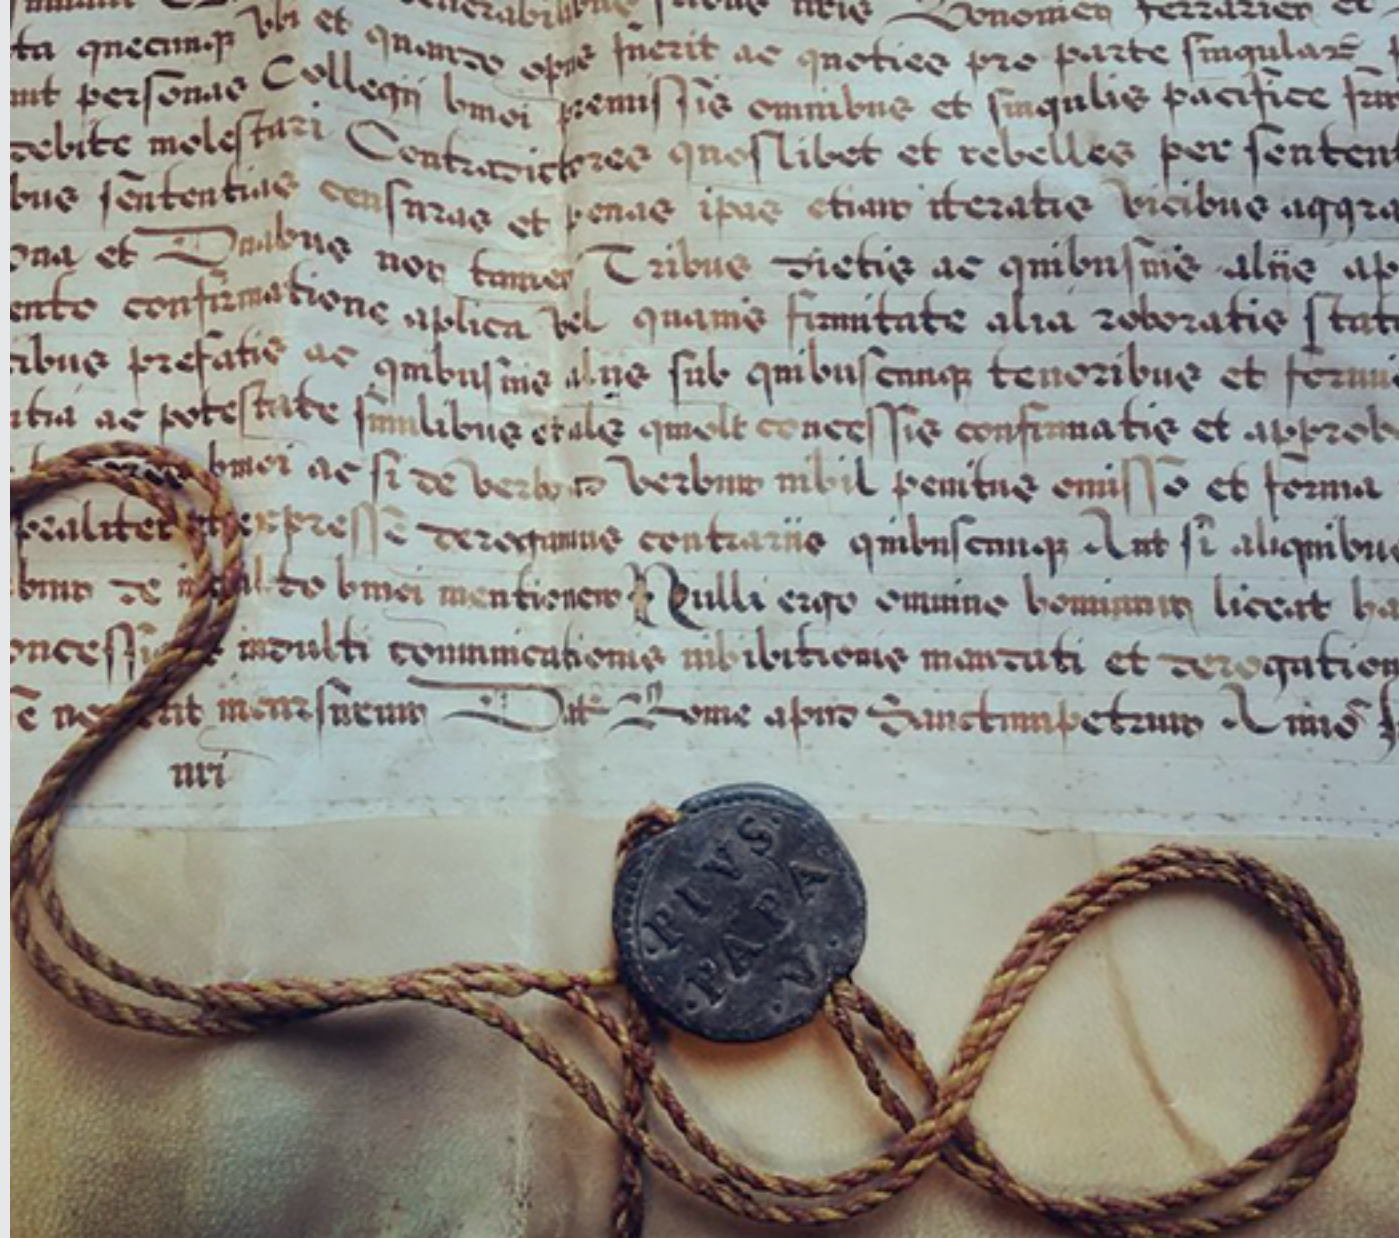 et
ta quecunq ubi et quando opus fuerit ac quoties pro parte singular
personas Collegij hmoi premissis omnibus et singulis pacifice
debite molestari Contradictores quoslibet et rebelles per sentent
bus sententias censuras et penas ipas etiam iteratis vicibus aggra
ona et Duabus non tamen Tribus dictis ac quibusuis aliis ap
ente confirmatione aplica vel quauis firmitate alia roboratis stat
ribus prefatis ac quibusuis alijs sub quibuscunq tenoribus et formis
ac potestate similibus et als quolt concessis confirmatis et approb
hmoi ac si de verbo ad verbum nihil penitus omisso et forma
pecialiter et expresse derogamus contrariis quibuscunq Aut si aliquibus
de indulto hmoi mentionem Nulli ergo omnino hominum liceat ha
oncessionis indulti communicationis inhibitionis mandati et derogation
se nouerit incursurum Dat Rome apud Sanctumpetrum Anno
nri
PIVS
PAPA
V